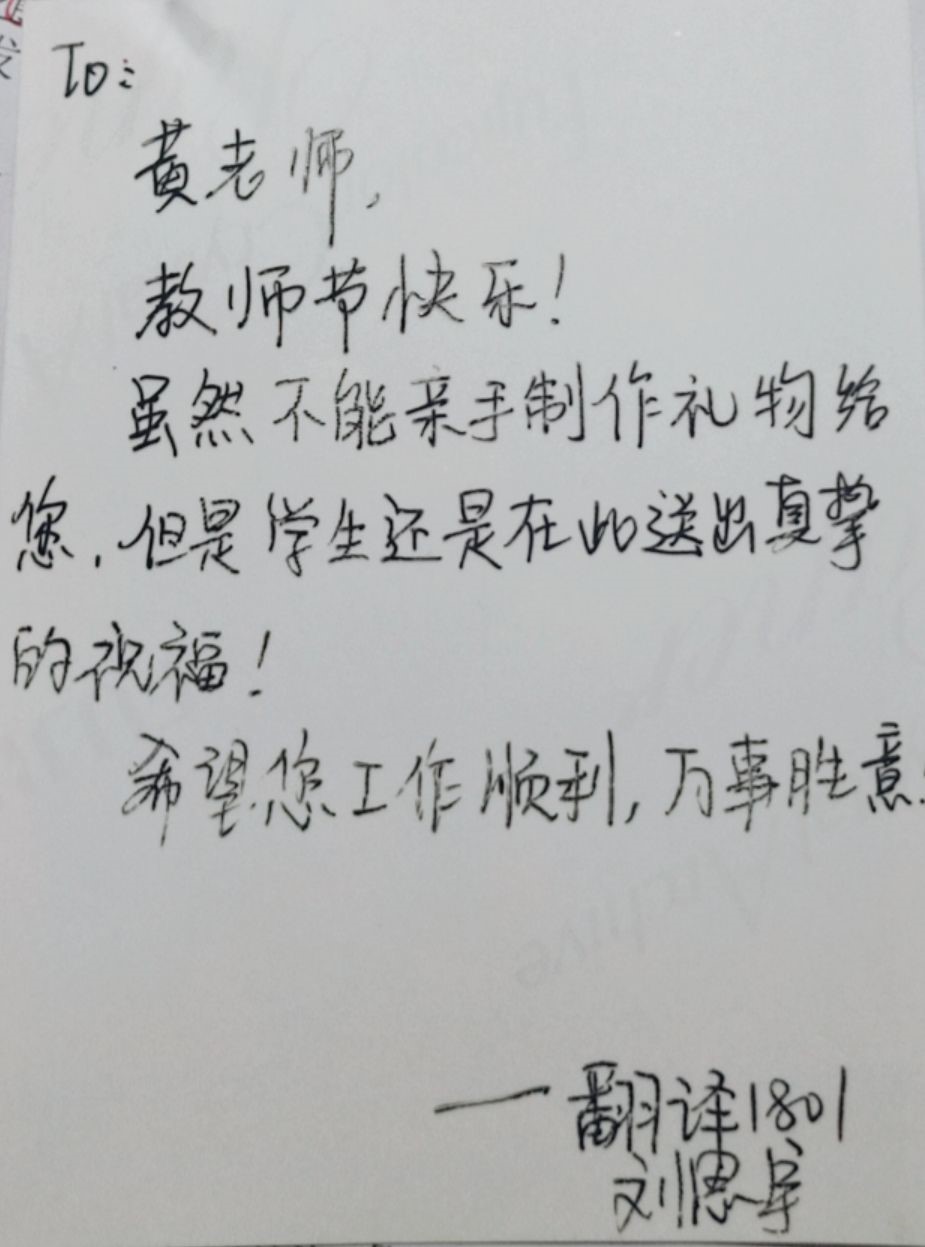 To:
黄老师,
教师节快乐!
虽然不能亲手制作礼物给
您,但是学生还是在此送出真挚
的祝福!
希望您工作顺利,万事胜意
——翻译1801
刘思宇